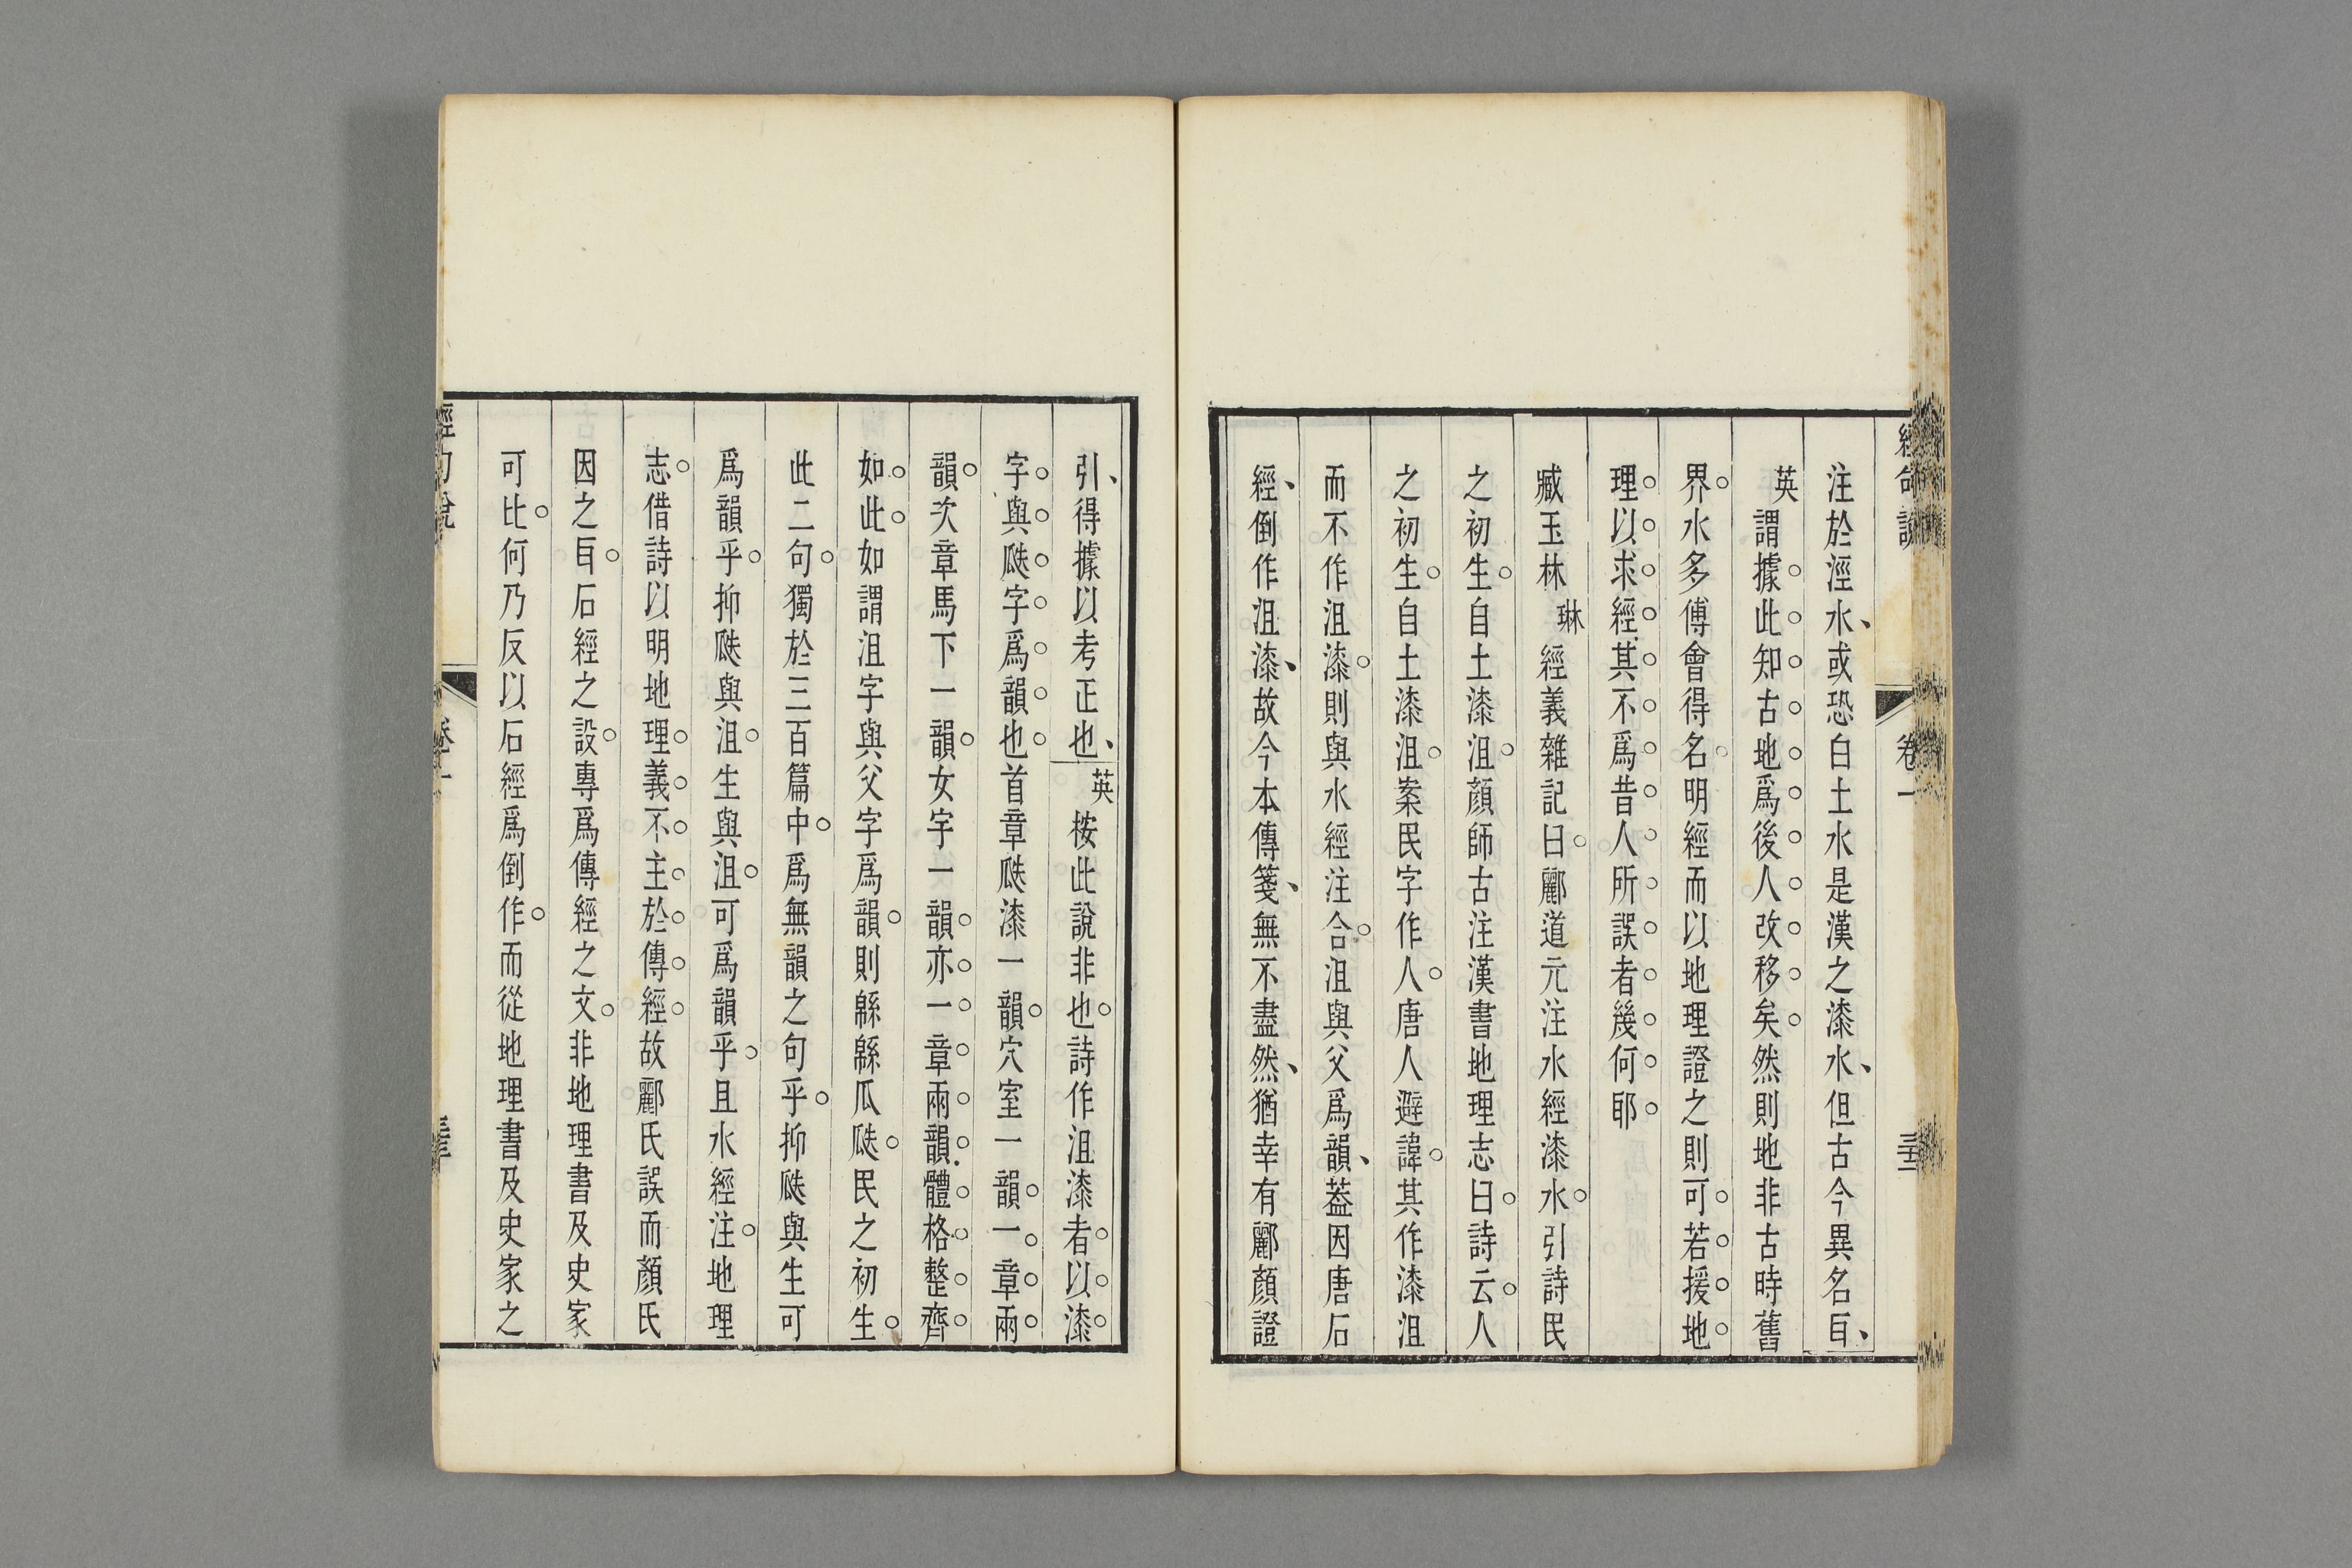 經句說
卷一
注於涇水、或恐白土水是漢之漆水、但古今異名𦣹、
英謂據此知古地爲後人改移矣然則地非古時舊
界水多傅會得名明經而以地理證之則可若援地
理以求經其不爲昔人所誤者幾何耶
臧玉林琳經義雜記曰酈道元注水經漆水引詩民
之初生自土漆沮顏師古注漢書地理志曰詩云人
之初生自土漆沮案民字作人唐人避諱其作漆沮
而不作沮漆則與水經注合沮與父爲韻、葢因唐石
經、倒作沮漆、故今本傳箋、無不盡然、猶幸有酈顏證
引、得據以考正也、英按此說非也詩作沮漆者以漆
字與瓞字爲韻也首章瓞漆一韻穴室一韻一章兩
韻次章馬下一韻女宇一韻亦一章兩韻體格整齊
如此如謂沮字與父字爲韻則緜緜瓜瓞民之初生
此二句獨於三百篇中爲無韻之句乎抑瓞與生可
爲韻乎抑瓞與沮生與沮可爲韻乎且水經注地理
志借詩以明地理義不主於傳經故酈氏誤而顏氏
因之𦣹石經之設專爲傳經之文非地理書及史家
可比何乃反以石經爲倒作而從地理書及史家之
經句說
卷一